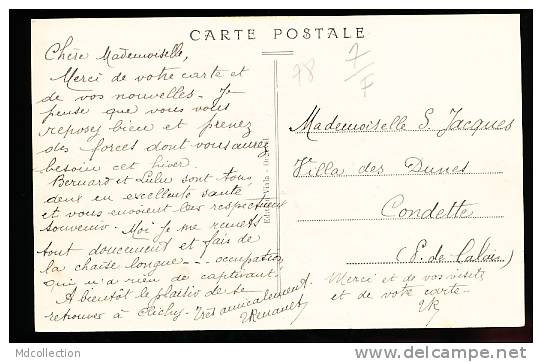 CARTE POSTALE
Chère Mademoiselle,
Merci de votre carte et
de vos nouvelles. Je
pense que vous vous
reposez bien et prenez
des forces dont vous aurez
besoin cet hiver.
Bernard et Lulu sont tous
deux en excellente santé
et vous envoient leur respectueux
souvenir. Moi je me remets
tout doucement et fais de
la chaise longue - occupation
qui n'a rien de captivant!
A bientôt le plaisir de se
retrouver à Clichy. Très amicalement.
78
7/F
Mademoiselle S. Jacques
Villa des Dunes
Condette
(P. de Calais)
Merci et de vos visites
et de votre carte-
Mdcollection
http://www.delcampe.net